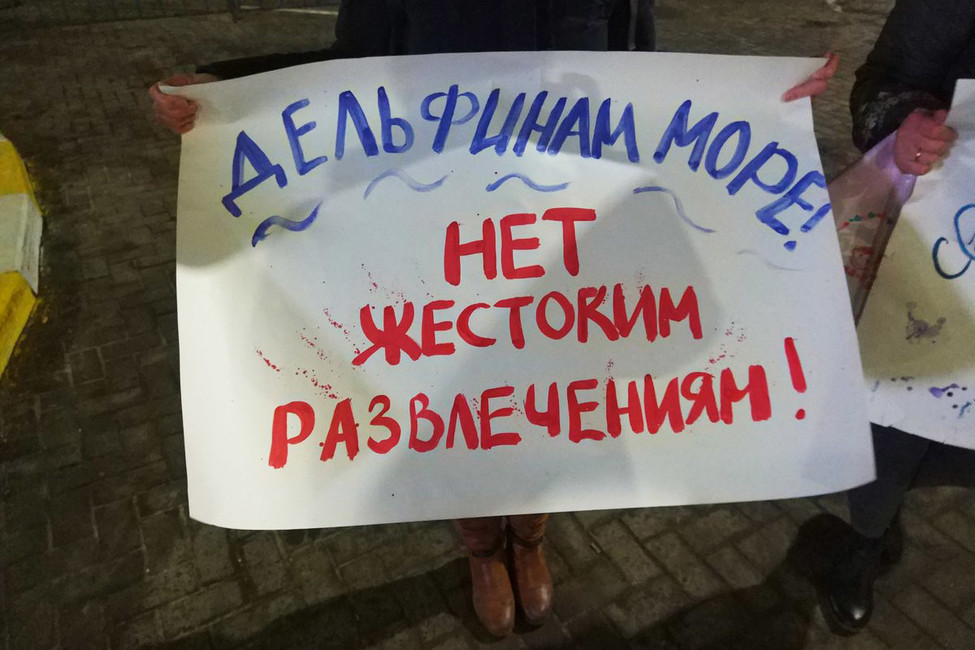 ДЕЛЬФИНАМ МОРЕ!
НЕТ
ЖЕСТОКИМ
РАЗВЛЕЧЕНИЯМ!